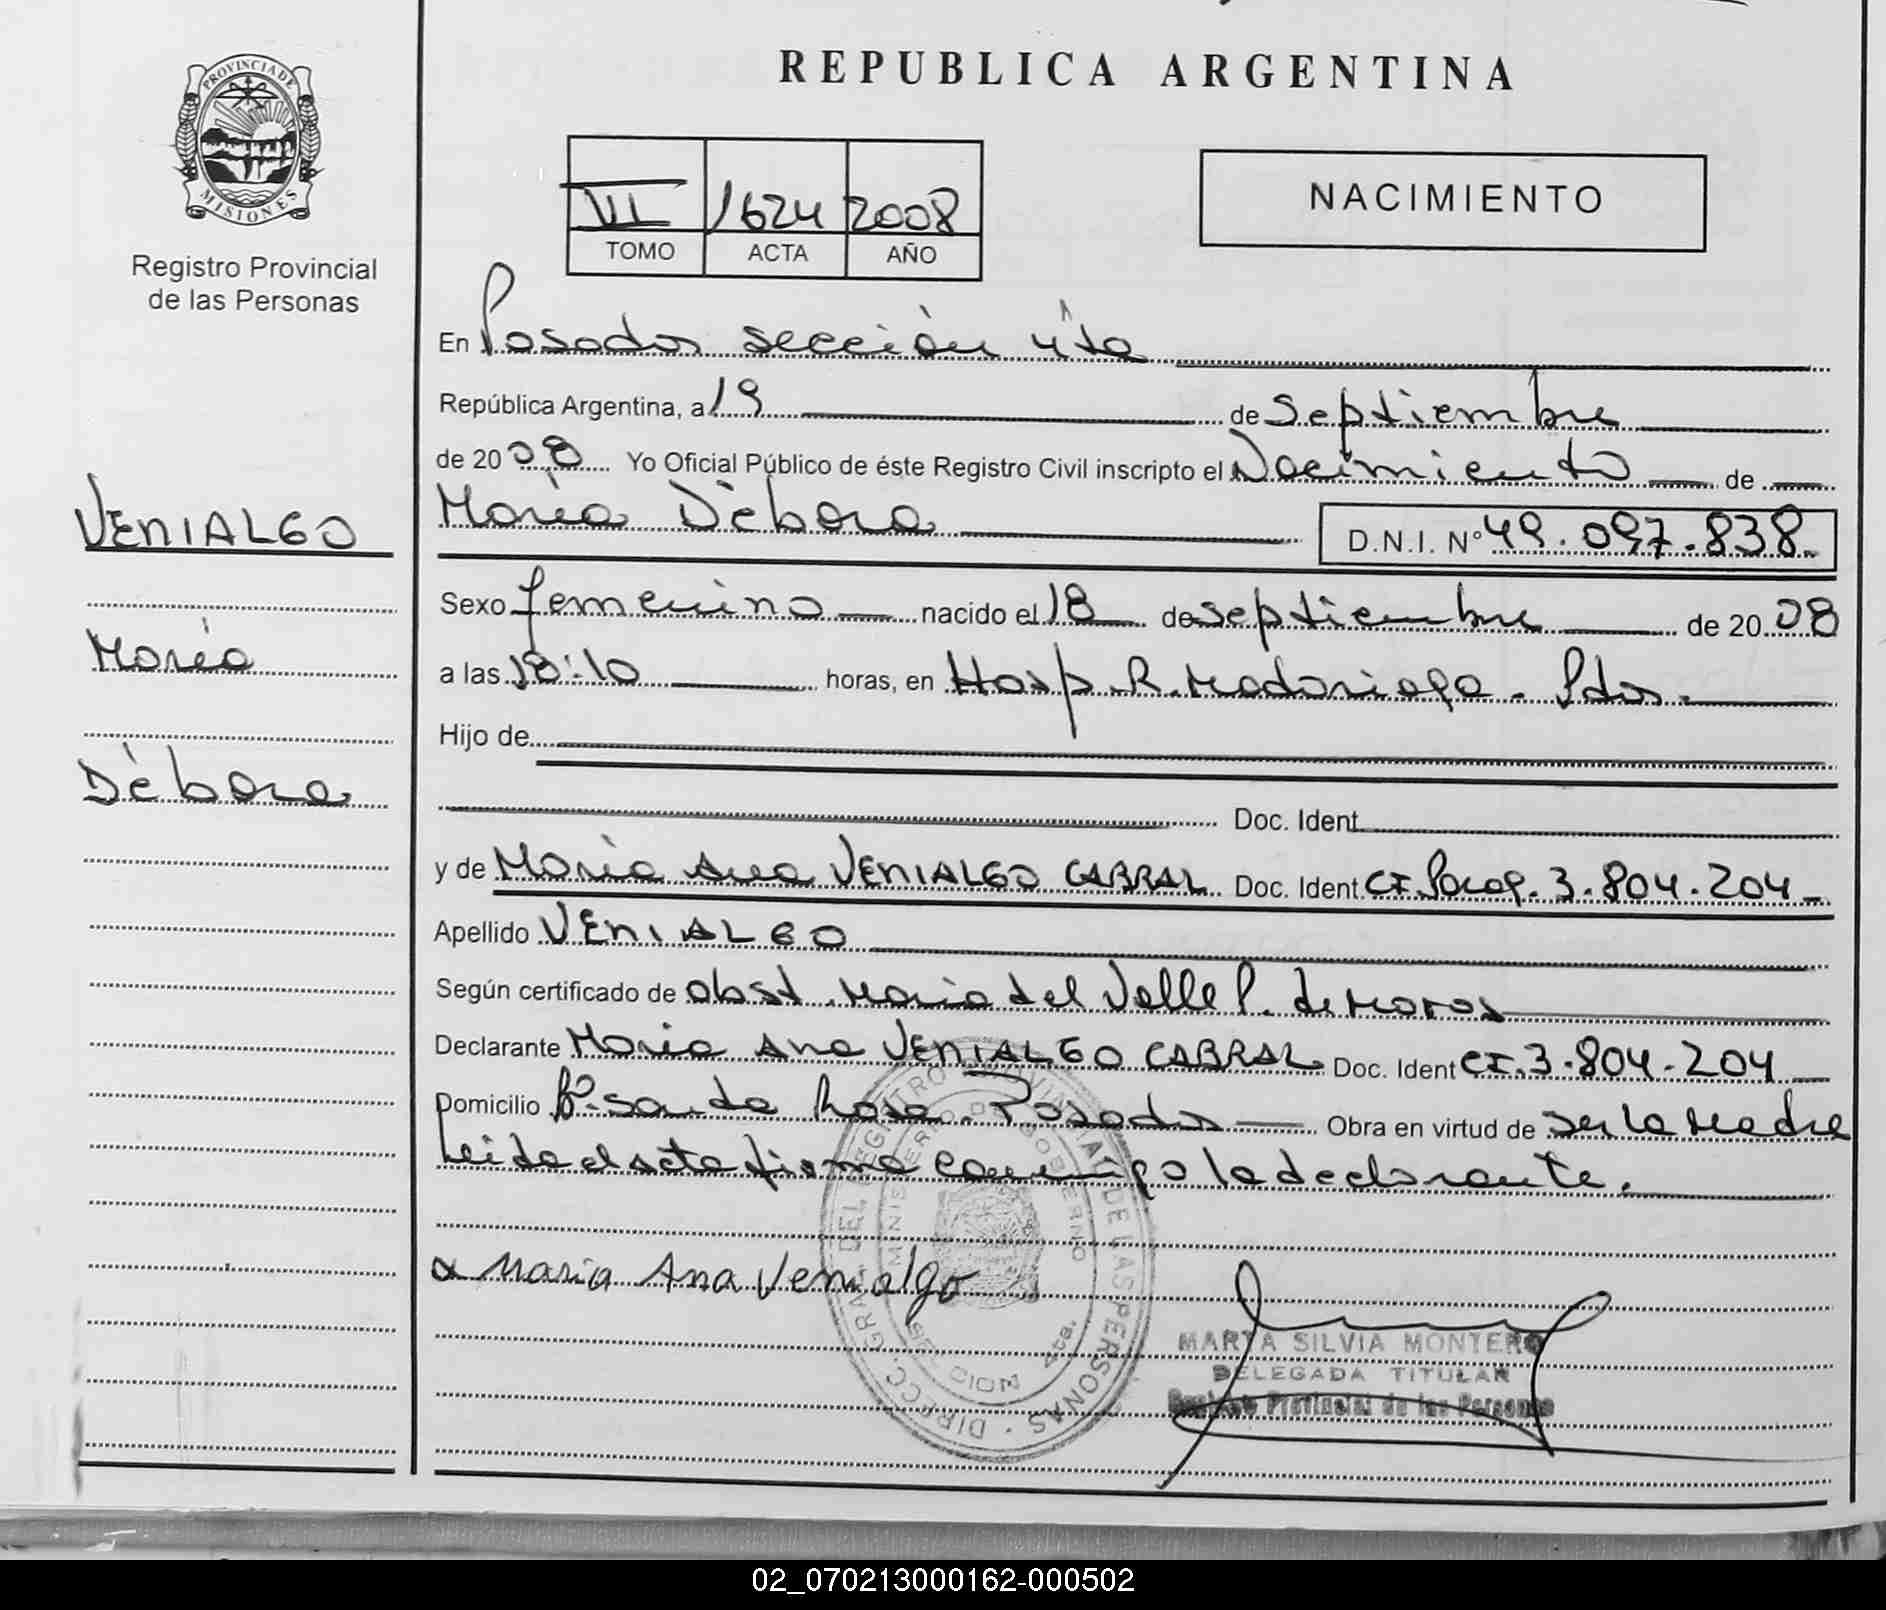 PROVINCIA DE
MISIONES
Registro Provincial
de las Personas
VENIALGO
María
Dèbora
REPUBLICA ARGENTINA
VI 1624 2008
TOMO ACTA AÑO
NACIMIENTO
En Posadas sección 4ta
República Argentina, a 19 de Septiembre
de 2008 Yo Oficial Público de éste Registro Civil inscripto el Nacimiento de
María Dèbora D.N.I. N° 49.097.838
Sexo femenino nacido el 18 de septiembre de 2008
a las 18:10 horas, en Hosp. R. Madariaga - Pdas.
Hijo de
Doc. Ident
y de María Ana VENIALGO CABRAL Doc. Ident CI. Parag. 3.804.204
Apellido VENIALGO
Según certificado de obst. María del Valle P. de Moras
Declarante María Ana VENIALGO CABRAL Doc. Ident CI. 3.804.204
Domicilio Bº Santa Rosa. Posadas Obra en virtud de ser la Madre
Leida el acta firma conmigo la declarante.
x Maria Ana Venialgo
DIRECC. GRAL. DEL REGISTRO PROVINCIAL DE LAS PERSONAS
MINISTERIO DE GOBIERNO
4ta.
MARTA SILVIA MONTERO
DELEGADA TITULAR
Registro Provincial de las Personas
02_070213000162-000502